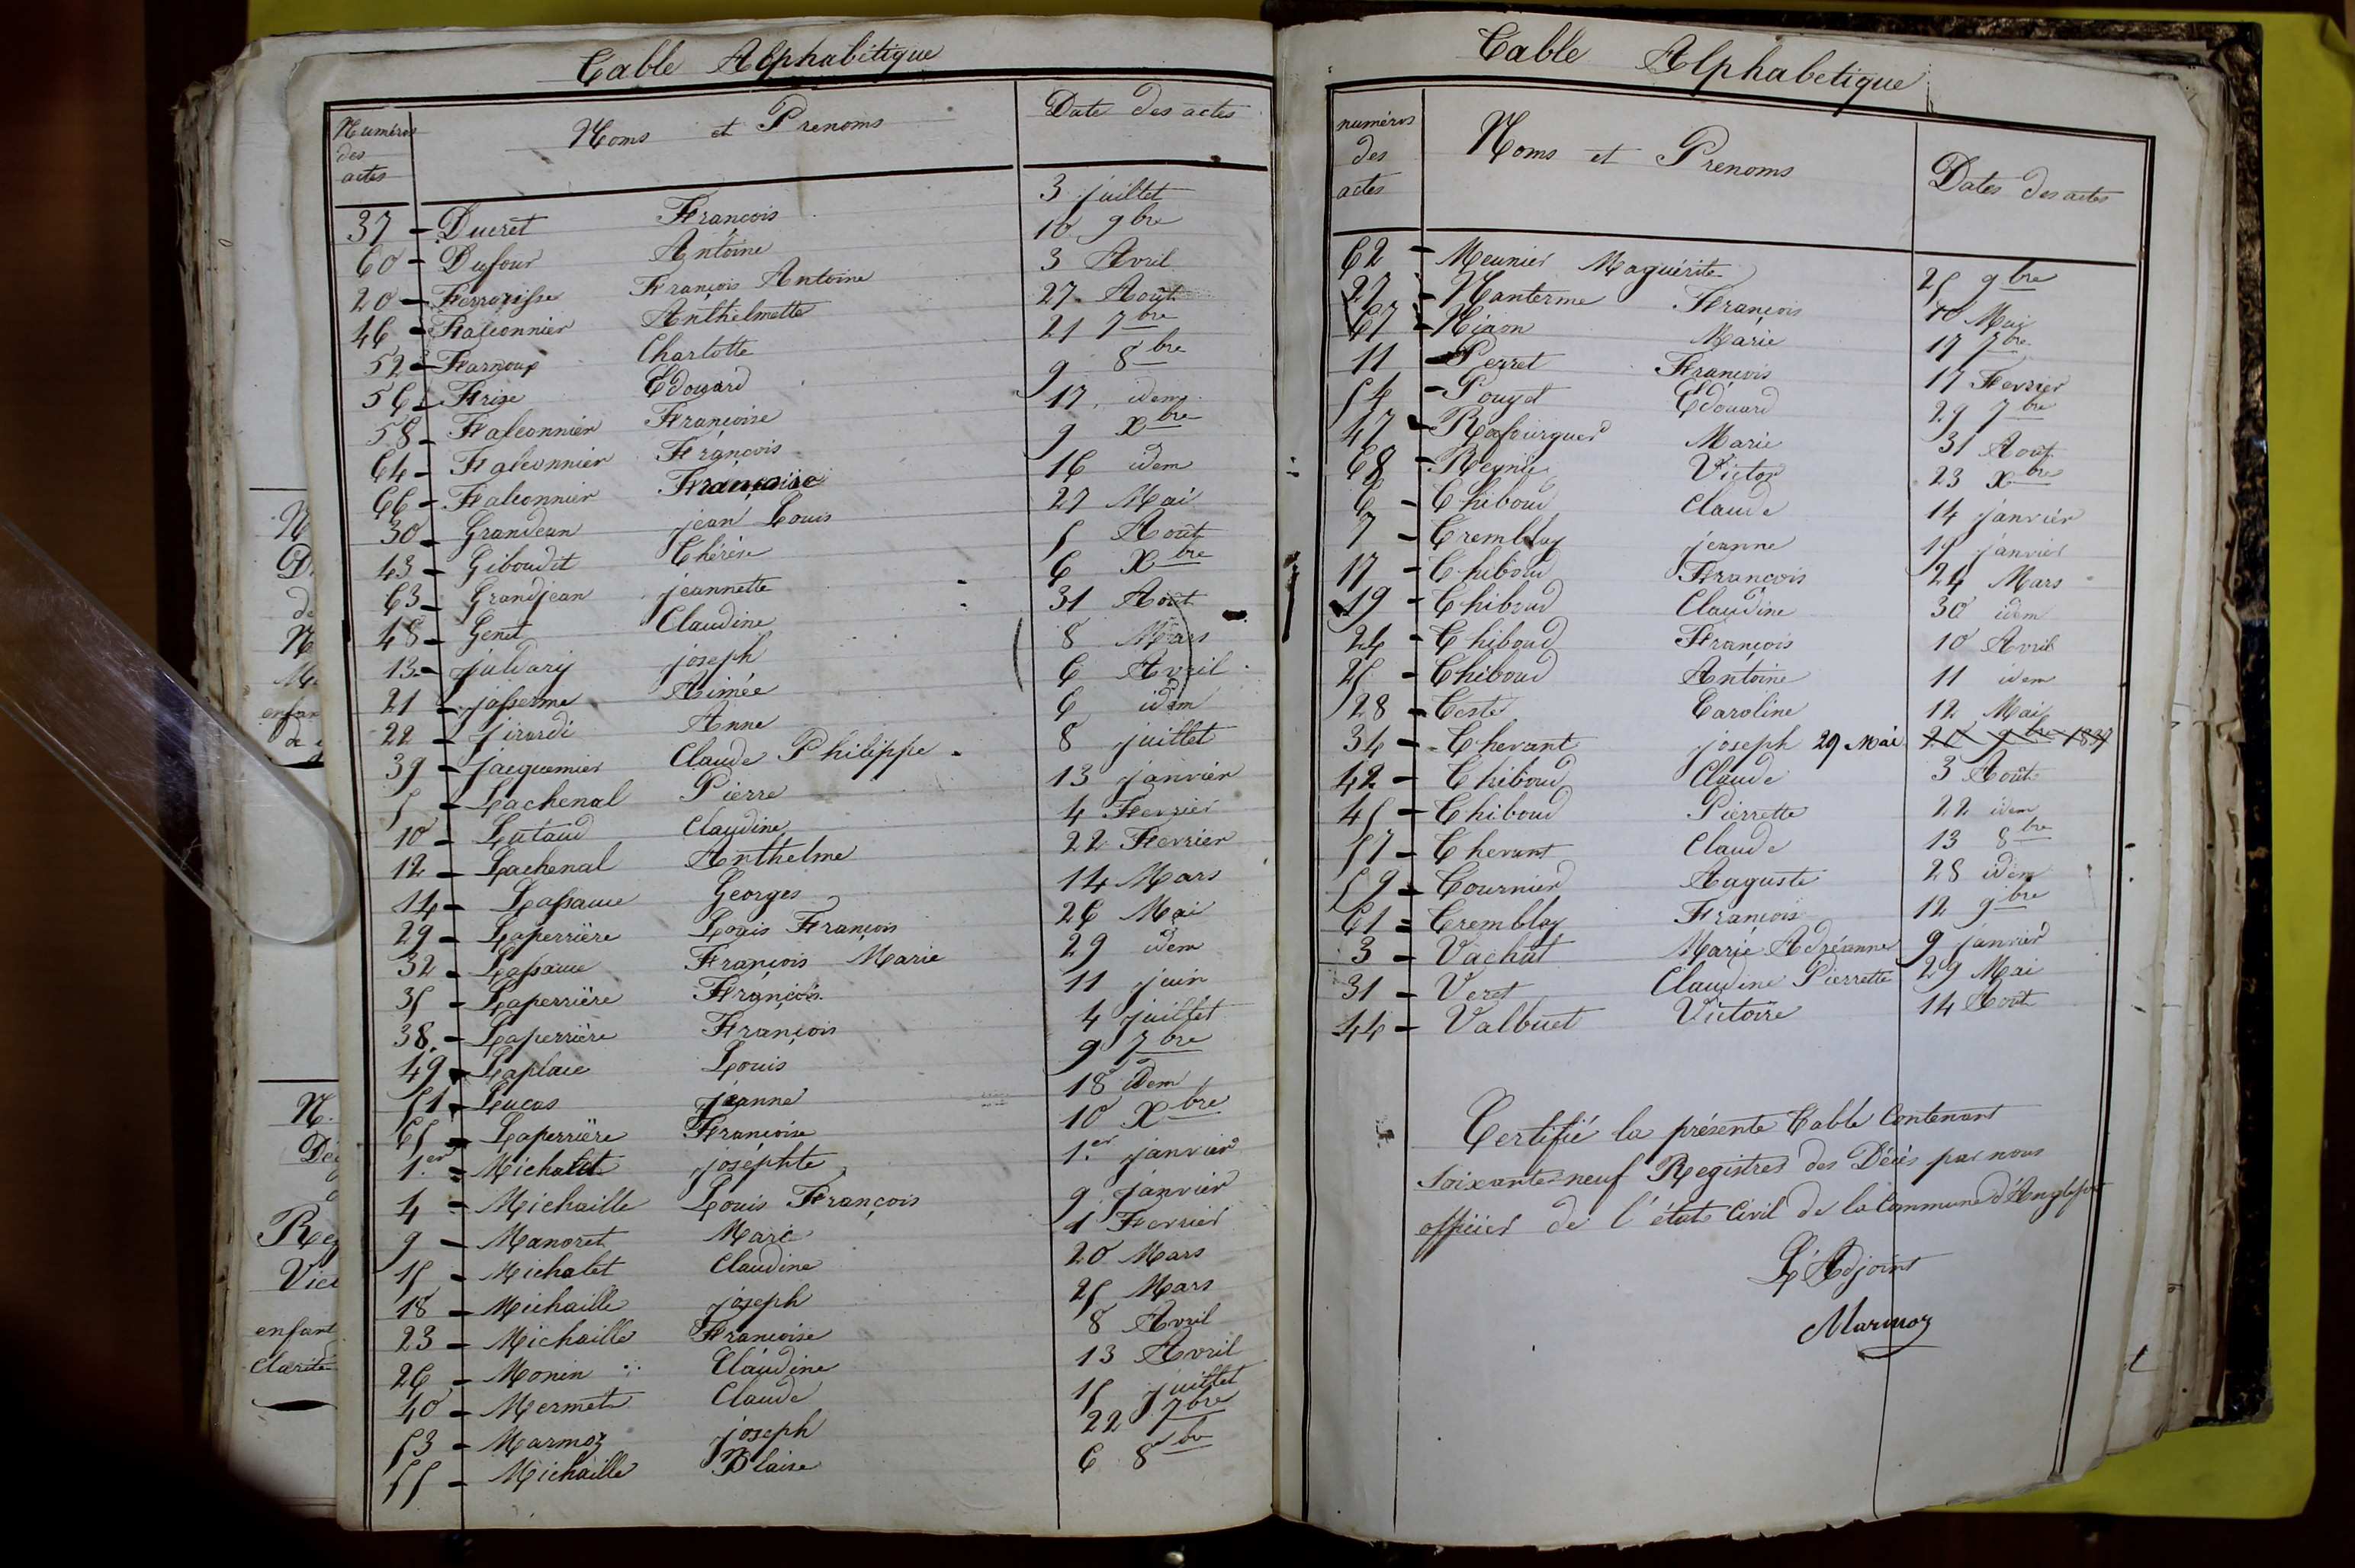 Table Alphabétique
Numéros des actes Noms et Prenoms Date des actes
37 - Ducret François 3 juillet
60 - Dufour Antoine 10 9bre
20 - François Antoine 3 Avril
46 - Falconnier Anthelmette 27 Août
52 - Farnoux Charlotte 21 7bre
56 - Frise Edouard 9 8bre
58 - Falconnier Françoise 17 idem
64 - Falconnier François 9 Xbre
66 - Falconnier Françoise 16 idem
30 - Grandean jean Louis 27 Mai
43 - Giboudet Thérèse 5 Août
63 - Grandjean jeannette 6 Xbre
48 - Genet Claudine 31 Août
13 - joseph 8 Mars
21 - jasserme Aimée 6 Avril
22 - jirardi Anne 6 idem
39 - jacquemier Claude Philippe 8 juillet
5 - Lachenal Pierre 13 janvier
10 - Lutaud Claudine 4 Fevrier
12 - Lachenal Anthelme 22 Fevrier
14 - Lassauce Georges 14 Mars
29 - Laperrière Louis François 26 Mai
32 - Lassauce François Marie 29 idem
35 - Laperrière François 11 juin
38 - Laperrière François 4 juillet
49 - Laplace Louis 9 7bre
51 - Lucas jeanne 18 idem
65 - Laperrière Françoise 10 Xbre
1.er - Michalet josephte 1.er janvier
4 - Michaille Louis François 9 janvier
9 - Manoret Marie 1 Fevrier
15 - Michalet Claudine 20 Mars
18 - Michaille joseph 25 Mars
23 - Michaille Françoise 8 Avril
26 - Monin Claudine 13 Avril
40 - Mermet Claude 15 juillet
53 - Marmoz joseph 22 7bre
55 - Michaille Blaise 6 8bre
Table Alphabetique
numéros des actes Noms et Prenoms Dates des actes
62 - Meunier Maguérite 25 9bre
27 - Nanterme François 10 Mai
67 - Marie 17 7bre
11 - Perret François 17 Fevrier
54 - Pouget Edouard 29 7bre
47 - Marie 31 Août
68 - Victor 23 Xbre
6 - Thiboud Claude 14 janvier
7 - Tremblay jeanne 15 janvier
17 - Thiboud François 24 Mars
19 - Thiboud Claudine 30 idem
24 - Thiboud François 10 Avril
25 - Thiboud Antoine 11 idem
28 - Teste Caroline 12 Mai
34 - Thevant joseph 29 Mai
42 - Thiboud Claude 3 Août
45 - Thiboud Pierrette 22 idem
57 - Thevant Claude 13 8bre
59 - Tournier Auguste 28 idem
61 - Tremblay François 12 9bre
3 - Vachat Marie Adréanne 9 janvier
31 - Veret Claudine Pierrette 29 Mai
44 - Valbuet Victoire 14 Août
Certifié la présente Table Contenant
soixante-neuf Registres des Décès par nous
officier de l'état civil de la Commune d'Anglefort
L'Adjoint
Marmoz